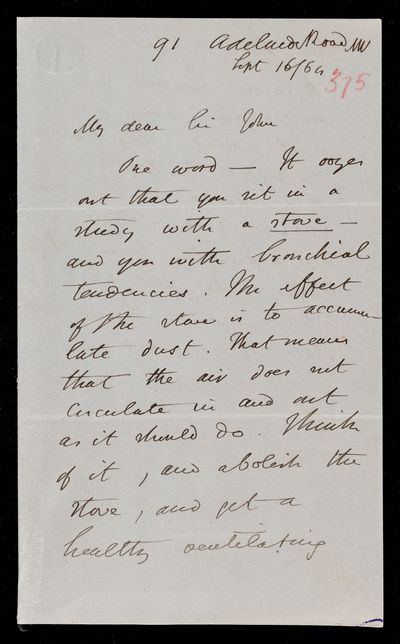 91 Adelaide Road NW
Sept 16/64
375
My dear Sir John
One word — It oozes
out that you sit in a
study with a stove —
and you with bronchial
tendencies. The effect
of the stove is to accumu-
late dust. That means
that the air does not
circulate in and out
as it should do. Think
of it, and abolish the
stove, and get a
healthy ventilating